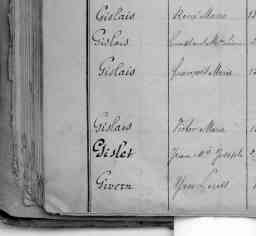 Gislais René Marie
Gislais Constant
Gislais François Marie
Gislais Victor Marie
Gislet Jean Joseph
Givern Yves Louis